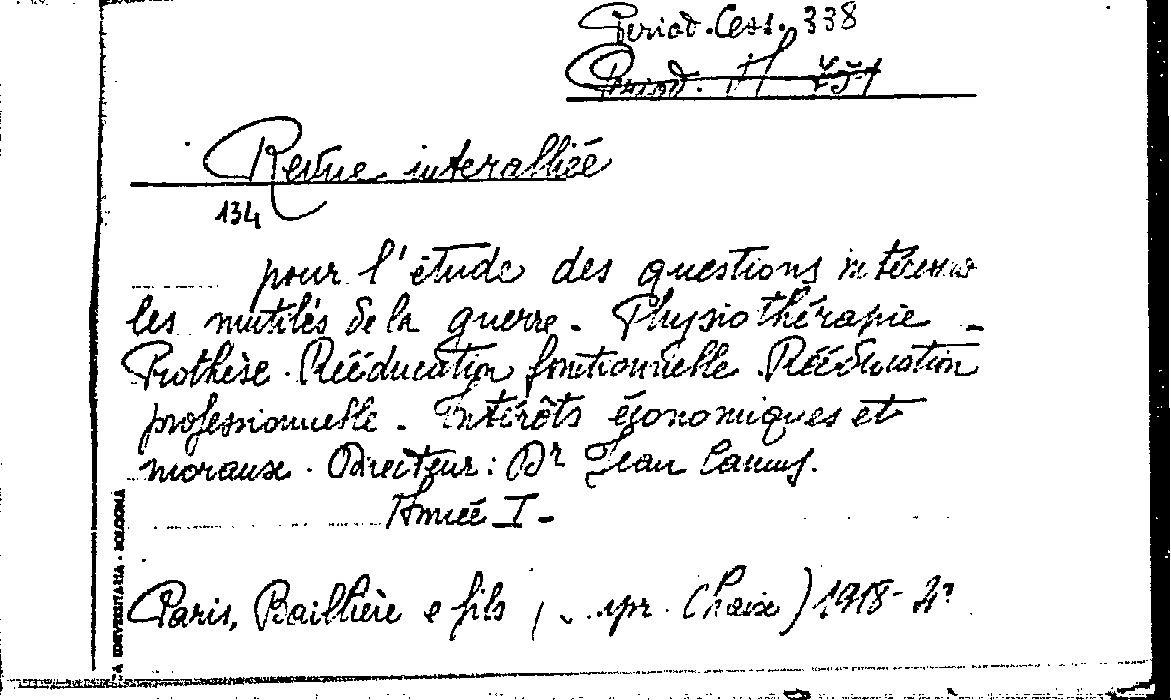 Period. Cess. 338
Period. H 451
Revue interalliée
134
pour l'étude des questions intéress
les mutilés de la guerre - Physiothérapie -
Prothèse. Rééducation fonctionnelle Rééducation
professionnelle - Intérêts économiques et
moraux. Directeur: Dr Jean Camus.
Année I -
Paris, Baillière e fils ( Chaix) 1918-
UNIVERSITARIA - BOLOGNA